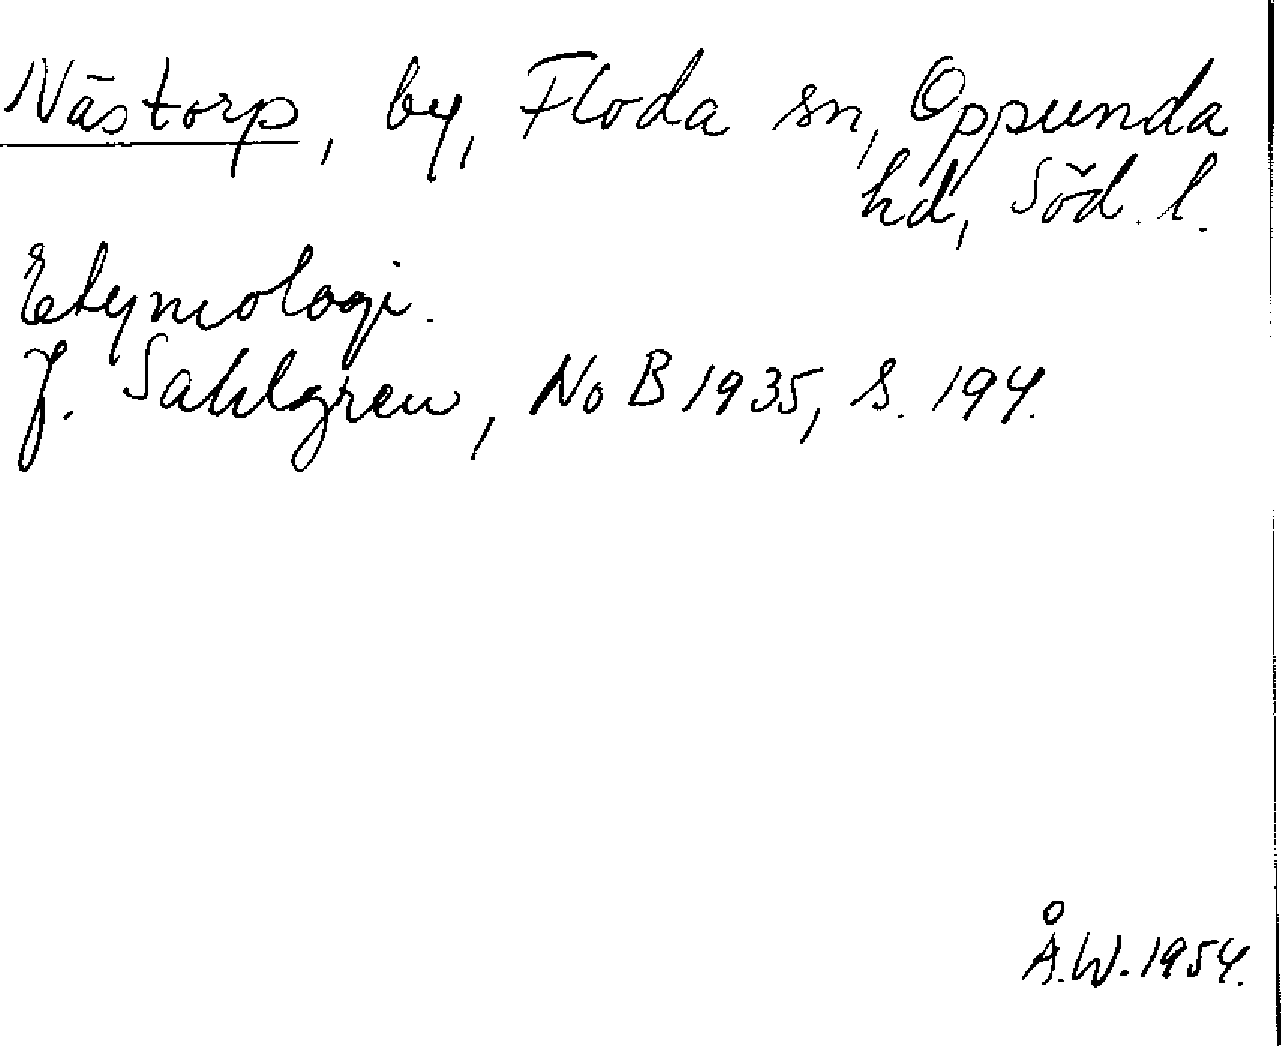 Nästorp, by, Floda sn, Oppunda
hd, Söd. l.
Etymologi.
J. Sahlgren, NoB 1935, s. 194.
Å.W. 1954.